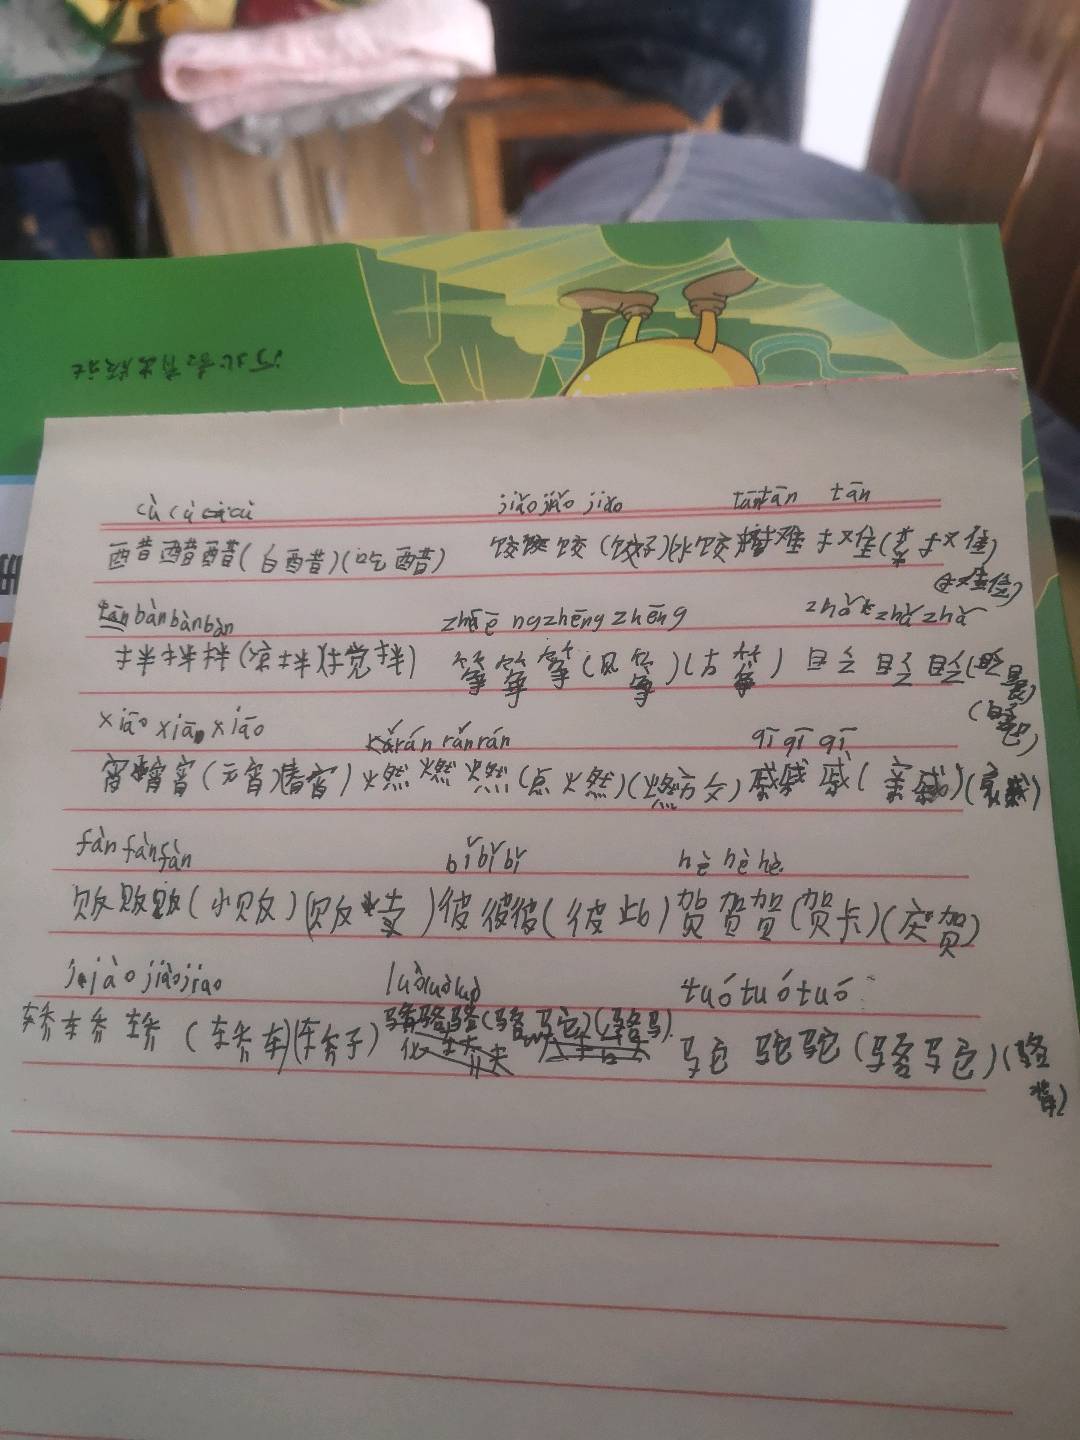 河北教育出版社
cù cù cù cù jiǎo jiǎo jiǎo tān tān tān
醋醋醋(白醋)(吃醋) 饺饺饺(饺子)(水饺) 摊摊摊(菜摊)
(摊位)
bàn bàn bàn zhēng zhēng zhēng zhǎ zhǎ
拌拌拌(凉拌)(搅拌) 筝筝筝(风筝)(古筝) 眨眨眨
xiāo xiāo xiāo rán rán rán qī qī qī
宵宵宵(元宵)(春宵) 燃燃燃(点燃)(燃放) 戚戚戚(亲戚)
fàn fàn fàn bǐ bǐ bǐ hè hè hè
贩贩贩(小贩)(贩卖) 彼彼彼(彼此) 贺贺贺(贺卡)(庆贺)
jiào jiào jiào luò luò luò tuó tuó tuó
轿轿轿(轿车)(轿子) 骆骆骆(骆驼)(骆马) 驼驼驼(骆驼)